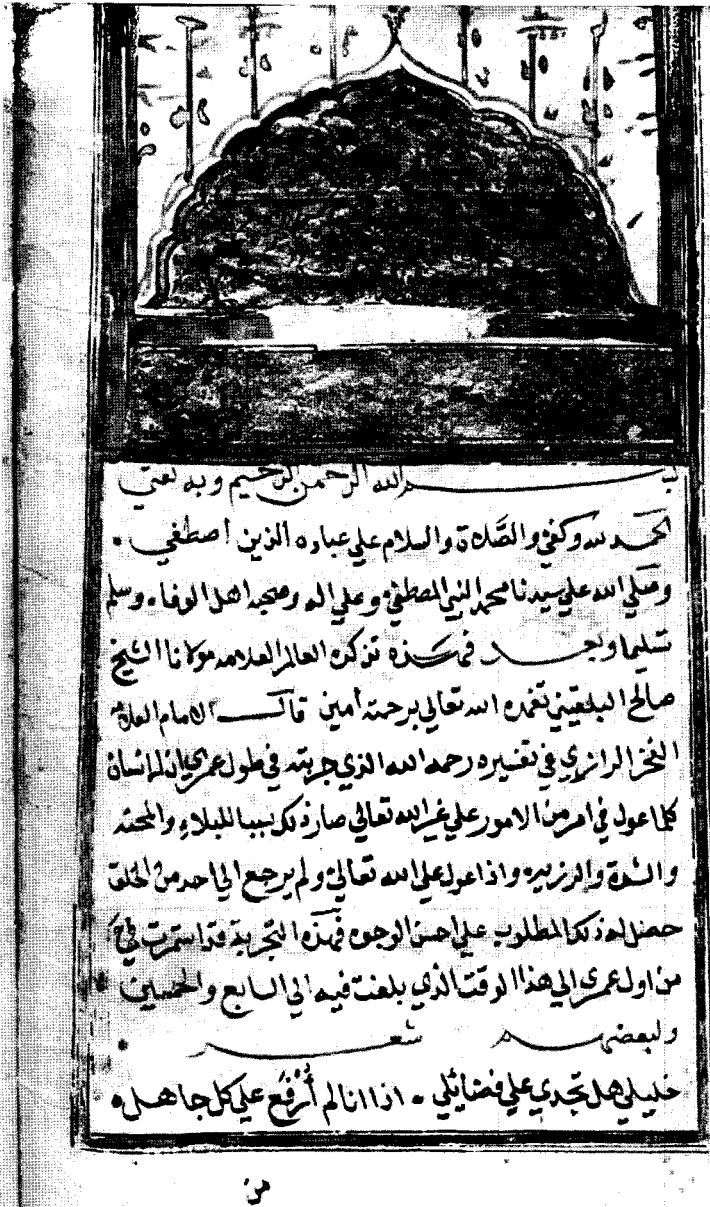 بسم الله الرحمن الرحيم وبه ثقتي
الحمد لله وكفى والصَّلاة والسلام علي عباده الذين اصطفي .
وصلي الله علي سيدنا محمد النبي المصطفى وعلي اله وصحبه اهل الوفاء وسلم
تسليما وبعد فهذه تذكرة العالم العلامه مولانا الشيخ
صالح البلقيني تغمده الله تعالي برحمته أمين قال الامام العلامه
الفخر الرازي في تفسيره رحمه الله الذي جربته في طول عمري ان الانسان
كلما عول في امر من الامور علي غير الله تعالى صار ذلك سببا للبلاء والمحنه
والشدة والرزيه واذا عول على الله تعالى ولم يرجع الي احد من الخلق
حصل له ذلك المطلوب علي احسن الوجوه فهذه التجربة قد استمرت لي
من اول عمري الي هذا الوقت الذي بلغت فيه الي السابع والخمسين
ولبعضهم شعر
خليلي هل تجدي علي فضائلي . اذا انا لم أُرفَع علي كل جاهل
من